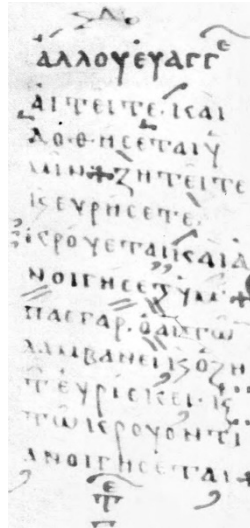 ἀλλοΥἐυαγγε
ἀιτειτε· καὶ
δοθησεταιὑ
μιν+ζητειτε
κ εὑρησετε·
κρούεταικαιἀ
νοιγησετὑμ·+
πασγὰρ· ὁαιτῶ
λαμβανεικὁζη
τ εὑρισκει· κς
τῶκρουοντι
ἀνοιγησεται+